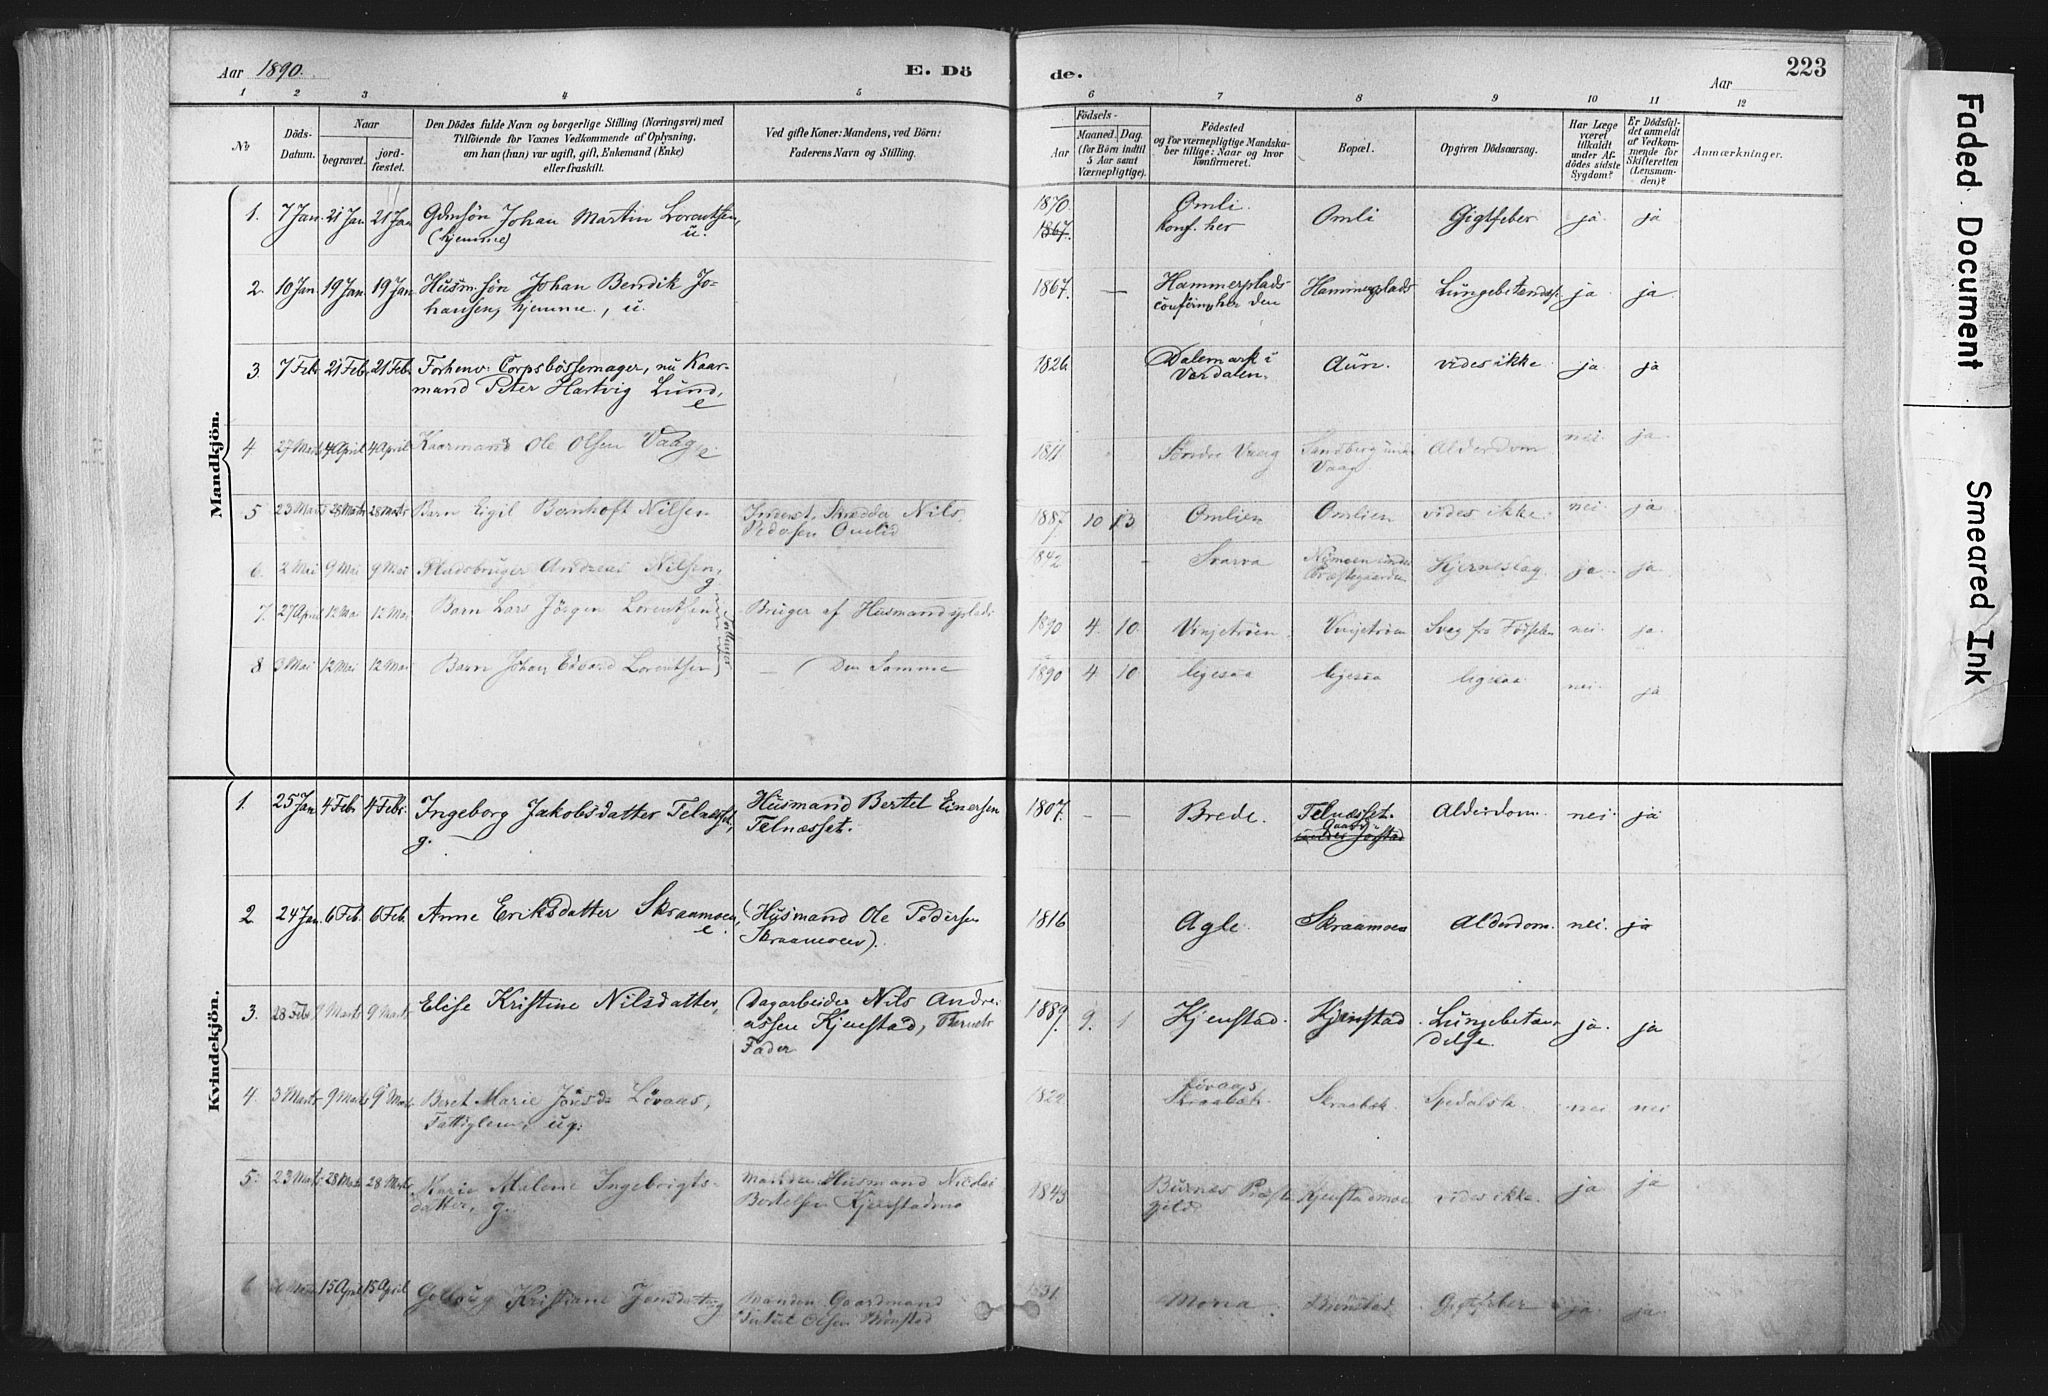 Aar 1890.
E. Döde.
Aar
223
1 2 3 4 5 6 7 8 9 10 11 12
No
Döds-Datum.
Naar
begravet.
jordfæstet.
Den Dödes fulde Navn og borgerlige Stilling (Næringsvei) med
Tilföiende for Voxnes Vedkommende af Oplysning,
om han (hun) var ugift, gift, Enkemand (Enke)
eller fraskilt.
Ved gifte Koner: Mandens, ved Börn:
Faderens Navn og Stilling.
Födsels-
Aar
Maaned. Dag.
(for Börn indtil
5 Aar samt
Værnepligtige).
Födested
og for værnepligtige Mandskaber
tillige: Naar og hvor
konfirmeret.
Bopæl.
Opgiven Dödsaarsag.
Har Læge
været
tilkaldt
under Afdödes
sidste
Sygdom?
Er Dödsfaldet
anmeldt
af Vedkommende
for
Skifteretten
(Lensmanden)?
Anmærkninger.
Mandkjön.
1. 7 Jan. 21 Jan 21 Jan Gdmsön Johan Martin Lorentsen, (hjemme) u. 1870 1867. Omli. konf. her Omli Gigtfeber ja ja
2. 10 Jan. 19 Jan 19 Jan Husm.sön Johan Bendik Johansen, hjemme, u. 1867. — Hammerplads confirm. her Hammerplads Lungebetændelse ja ja
3. 7 Feb. 21 Feb. 21 Feb. Forhenv. Corpsbössemager, nu Kaarmand Peter Hartvig Lund, e 1826 Dalemark i Verdalen. Aun. vides ikke ja ja
4 27 Marts 4 April 4 April Kaarmand Ole Olsen Vaag 1811 Söndre Vaag Sandberg under Vaag Alderdom nei. ja
5 23 Marts 28 Marts 28 Marts Barn Eigil Bernhoft Nilsen Inderst, Skrædder Nils Pedersen Omlid 1887 10 13 Omlien Omlien vides ikke. nei ja
6. 2 Mai 9 Mai 9 Mai Pladsbruger Andreas Nilsen, g 1842 - Svarva Nymoen under Præstegaarden Hjerneslag. ja. ja
7. 27 April 12 Mai 12 Mai Barn Lars Jörgen Lorentsen Tvillinger Bruger af Husmandsplads 1890 4. 10. Vinjetröen. Vinjetröen Svag fra Födselen nei. ja
8 3 Mai 12 Mai 12 Mai Barn Johan Edvard Lorentsen — Den Samme 1890 4 10 ligesaa ligesaa ligesaa nei ja
Kvindekjön.
1. 25 Jan. 4 Feb. 4 Feb. Ingeborg Jakobsdatter Telnæsset, g. Husmand Bertel Einersen Telnæsset. 1807. — — Brede. Telnæsset. Alderdom. nei. ja
2 24 Jan. 6 Feb. 6 Feb. Anne Eriksdatter Skraamoen, e. (Husmand Ole Pedersen Skraamoen). 1816 Agle. Skraamoen Alderdom. nei. ja
3. 28 Feb. 9 Marts 9 Marts Elise Kristine Nilsdatter, Dagarbeider Nils Andreassen Kjenstad, Barnets Fader 1889. 9. 1 Kjenstad. Kjenstad. Lungebetændelse. ja. ja
4. 3 Marts 9 Marts 9 Marts Beret Marie Jonsd. Lövaas, Fattiglem, ug. 1822 Lövaas Skraabæk. Skraabæk Spedalsk. nei nei
5. 23 Marts 28 Marts 28 Marts Karie Malene Ingebrigtsdatter, g. Manden: Husmand Nicolai Bertelsen Kjenstadmo 1843 Burnes Præstegjeld Kjenstadmoen vides ikke. ja ja
6 15 April 15 April Kristiane Jonsdatter g Manden Gaardmand Olsen 1831. Mona. Gigtfeber ja. ja.
Faded Document
Smeared Ink